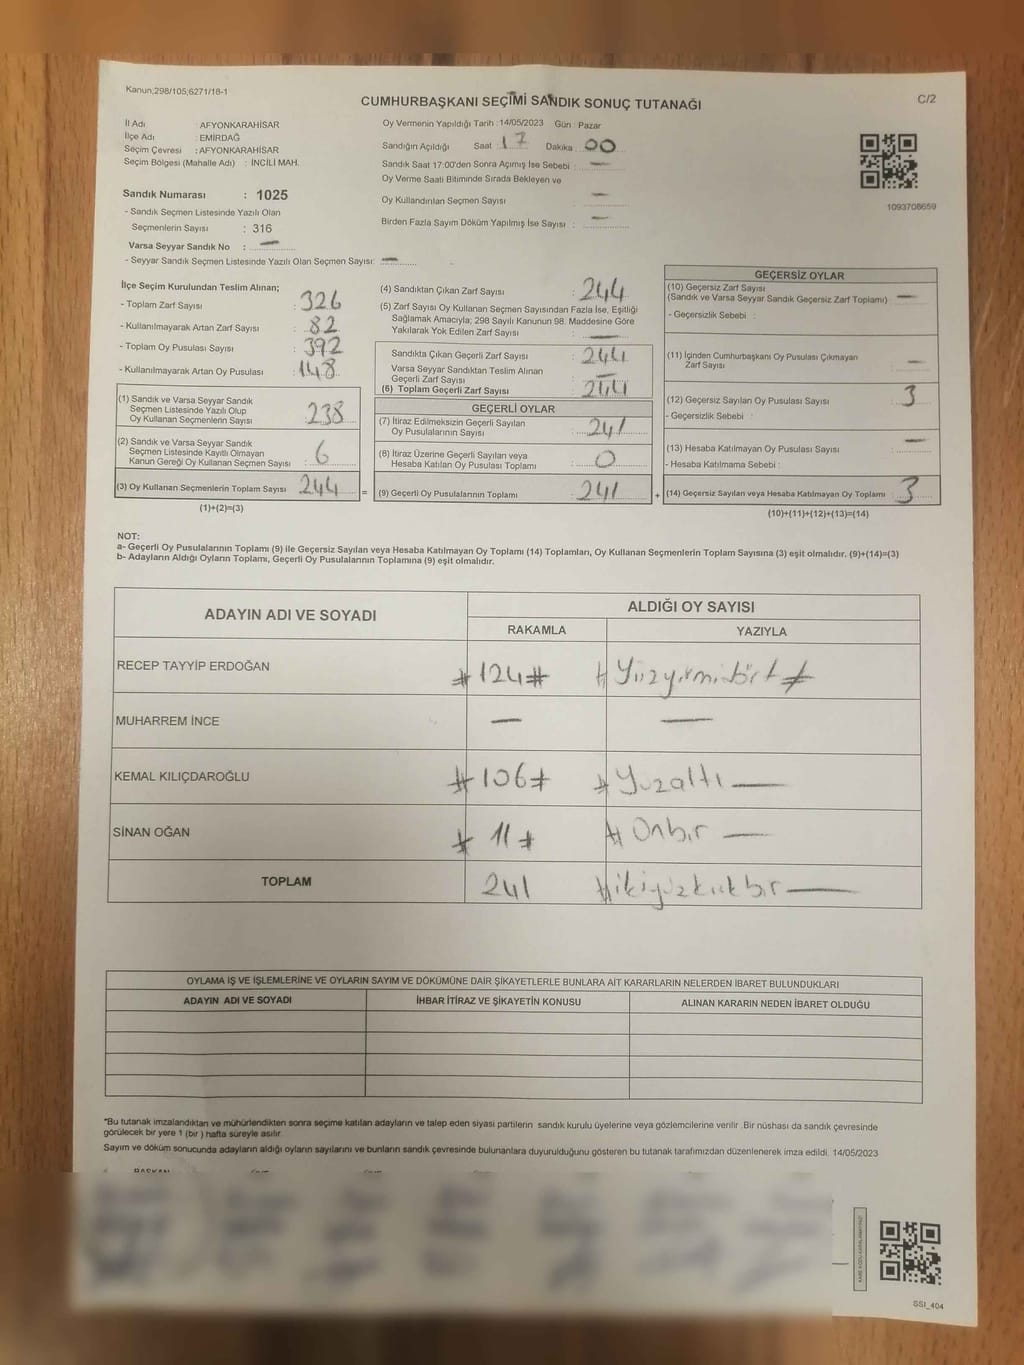 Kanun;298/105;6271/18-1
CUMHURBAŞKANI SEÇİMİ SANDIK SONUÇ TUTANAĞI
C/2
İl Adı : AFYONKARAHİSAR
İlçe Adı : EMİRDAĞ
Seçim Çevresi : AFYONKARAHİSAR
Seçim Bölgesi (Mahalle Adı) : İNCİLİ MAH.
Oy Vermenin Yapıldığı Tarih : 14/05/2023 Gün : Pazar
Sandığın Açıldığı Saat 17 Dakika 00
Sandık Saat 17:00'den Sonra Açımış İse Sebebi : —
Oy Verme Saati Bitiminde Sırada Bekleyen ve
Oy Kullandırılan Seçmen Sayısı —
Birden Fazla Sayım Döküm Yapılmış İse Sayısı : —
1093708659
Sandık Numarası : 1025
- Sandık Seçmen Listesinde Yazılı Olan
Seçmenlerin Sayısı : 316
Varsa Seyyar Sandık No : —
- Seyyar Sandık Seçmen Listesinde Yazılı Olan Seçmen Sayısı: —
İlçe Seçim Kurulundan Teslim Alınan;
- Toplam Zarf Sayısı : 326
- Kullanılmayarak Artan Zarf Sayısı : 82
- Toplam Oy Pusulası Sayısı : 392
- Kullanılmayarak Artan Oy Pusulası : 148
(1) Sandık ve Varsa Seyyar Sandık
Seçmen Listesinde Yazılı Olup
Oy Kullanan Seçmenlerin Sayısı : 238
(2) Sandık ve Varsa Seyyar Sandık
Seçmen Listesinde Kayıtlı Olmayan
Kanun Gereği Oy Kullanan Seçmen Sayısı : 6
(3) Oy Kullanan Seçmenlerin Toplam Sayısı : 244 =
(1)+(2)=(3)
(4) Sandıktan Çıkan Zarf Sayısı : 244
(5) Zarf Sayısı Oy Kullanan Seçmen Sayısından Fazla İse, Eşitliği
Sağlamak Amacıyla; 298 Sayılı Kanunun 98. Maddesine Göre
Yakılarak Yok Edilen Zarf Sayısı : —
Sandıkta Çıkan Geçerli Zarf Sayısı : 244
Varsa Seyyar Sandıktan Teslim Alınan
Geçerli Zarf Sayısı : —
(6) Toplam Geçerli Zarf Sayısı : 244
GEÇERLİ OYLAR
(7) İtiraz Edilmeksizin Geçerli Sayılan
Oy Pusulalarının Sayısı : 241
(8) İtiraz Üzerine Geçerli Sayılan veya
Hesaba Katılan Oy Pusulası Toplamı : 0
(9) Geçerli Oy Pusulalarının Toplamı : 241 +
GEÇERSİZ OYLAR
(10) Geçersiz Zarf Sayısı
(Sandık ve Varsa Seyyar Sandık Geçersiz Zarf Toplamı) : —
- Geçersizlik Sebebi :
(11) İçinden Cumhurbaşkanı Oy Pusulası Çıkmayan
Zarf Sayısı : —
(12) Geçersiz Sayılan Oy Pusulası Sayısı : 3
- Geçersizlik Sebebi :
(13) Hesaba Katılmayan Oy Pusulası Sayısı : —
- Hesaba Katılmama Sebebi :
(14) Geçersiz Sayılan veya Hesaba Katılmayan Oy Toplamı : 3
(10)+(11)+(12)+(13)=(14)
NOT:
a- Geçerli Oy Pusulalarının Toplamı (9) ile Geçersiz Sayılan veya Hesaba Katılmayan Oy Toplamı (14) Toplamları, Oy Kullanan Seçmenlerin Toplam Sayısına (3) eşit olmalıdır. (9)+(14)=(3)
b- Adayların Aldığı Oyların Toplamı, Geçerli Oy Pusulalarının Toplamına (9) eşit olmalıdır.
ADAYIN ADI VE SOYADI ALDIĞI OY SAYISI
RAKAMLA YAZIYLA
RECEP TAYYİP ERDOĞAN #124# #Yüzyirmidört#
MUHARREM İNCE — —
KEMAL KILIÇDAROĞLU #106# #Yuzaltı —
SİNAN OĞAN #11# #Onbir —
TOPLAM 241 #ikiyüzkırkbir —
OYLAMA İŞ VE İŞLEMLERİNE VE OYLARIN SAYIM VE DÖKÜMÜNE DAİR ŞİKAYETLERLE BUNLARA AİT KARARLARIN NELERDEN İBARET BULUNDUKLARI
ADAYIN ADI VE SOYADI İHBAR İTİRAZ VE ŞİKAYETİN KONUSU ALINAN KARARIN NEDEN İBARET OLDUĞU
*Bu tutanak imzalandıktan ve mühürlendikten sonra seçime katılan adayların ve talep eden siyasi partilerin sandık kurulu üyelerine veya gözlemcilerine verilir .Bir nüshası da sandık çevresinde
görülecek bir yere 1 (bir) hafta süreyle asılır.
Sayım ve döküm sonucunda adayların aldığı oyların sayılarını ve bunların sandık çevresinde bulunanlara duyurulduğunu gösteren bu tutanak tarafımızdan düzenlenerek imza edildi. 14/05/2023
BAŞKAN
SSI_404